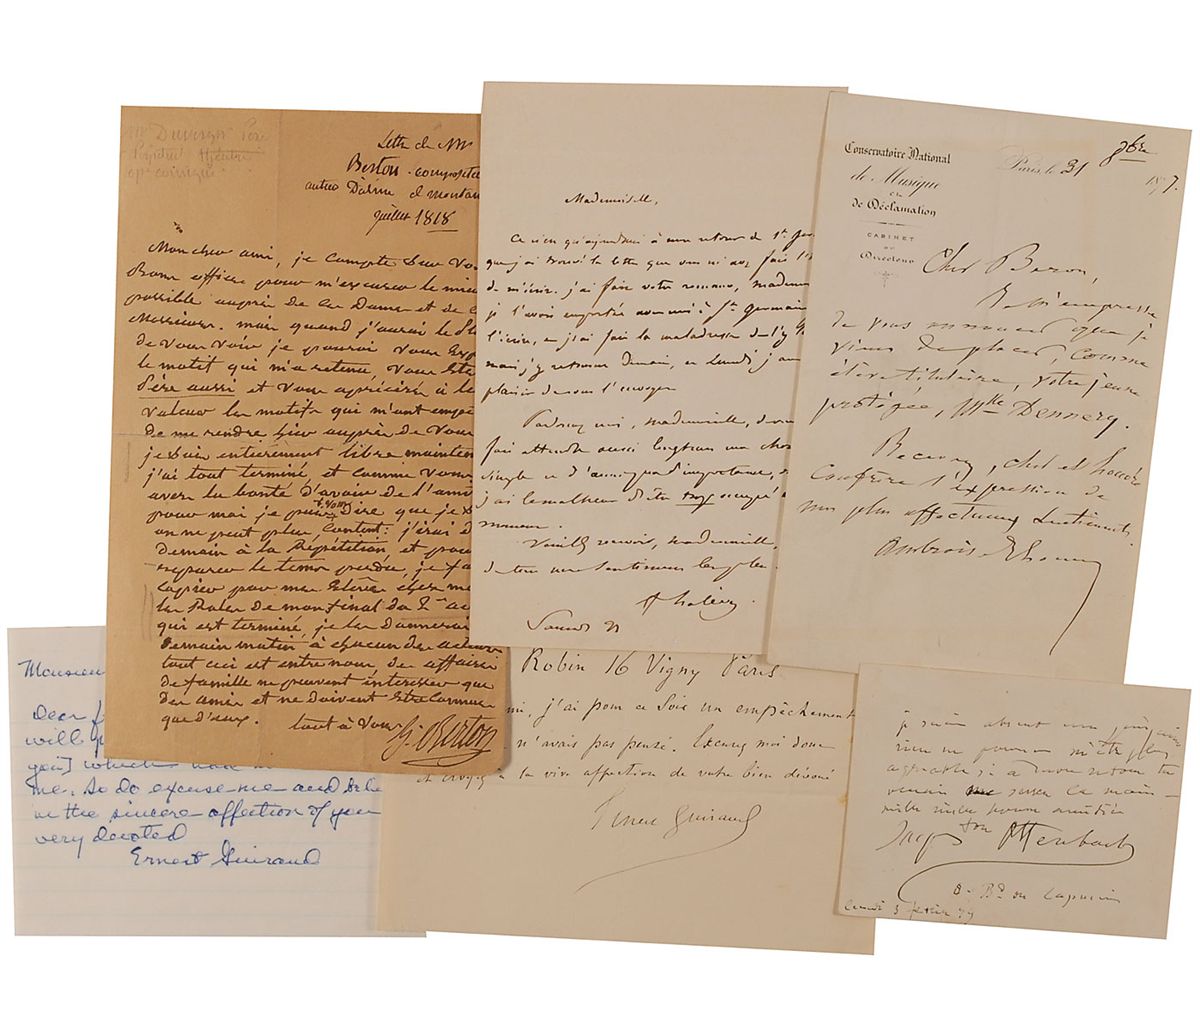 Lettre de Mr
Berton compositeu
auteur d'aline et montan
juillet 1818
Mon cher ami, je compte sur vos
Bons offices pour m'excuser le mieux
possible auprès de ces Dames et de ces
Messieurs. mais quand j'aurai le
de vous voir je pourai vous
le motif qui m'a retenu, vous êtes
Père aussi et vous apécirez à
valeur les motifs qui m'ont empê
de me rendre hier auprès de vous
je suis entierement libre mainten
j'ai tout terminé et comme vous
avez la bonté d'avoir de l'ami
pour moi je puis vous dire que je
on ne peut plus content: j'irai
Demain à la Répétition et pour
reparer le tems perdu, je
copier par mes Elèves chez moi
les Roles de mon final du 2me ac
qui est terminé, je les donnerai
Demain matin à chacun des acteurs
tout ceci est entre nous, des affaires
de famille ne peuvent intéresser que
des amis et ne doivent être connues
que d'eux.
tout à vous
H. Berton
Mademoiselle,
Ce n'est qu'aujourdhui à mon retour de St
que j'ai trouvé la lettre que vous m'avez fait
de m'écrire. j'ai fait votre romance, mademoi
je l'avais emportée avec moi à St germain
l'écrire, et j'ai fait la maladresse de l'y
mais j'y retourne demain, et lundi j'aurai
plaisir de vous l'envoyer
Pardonnez moi, mademoiselle, de vous
faire attendre aussi longtems une chose
simple et d'aussi peu d'importance,
j'ai le malheur d'être trop occupé
moment.
Veuillez recevoir, mademoiselle,
de tous mes sentimens les plus
F halévy
Samedi 21
Conservatoire National
de Musique
et
de Déclamation
CABINET
du
Directeur
Paris, le 31 8bre 187 7.
Cher Beron,
Je m'empresse
de vous annoncer que je
viens de placer, comme
élève titulaire, votre jeune
protégée, Mlle Dennery.
Recevez, cher et honoré
Confrère l'expression de
mes plus affectueux sentiments.
Ambroise Thomas
Monsieu
Dear
will
you] which had
me. So do excuse me and be
in the sincere affection of you
very devoted
Ernest Guiraud
Robin 16 Vigny Paris
mi, j'ai pour ce soir un empêchement
n'avais pas pensé. Excusez moi donc
et croyez à la vive affection de votre bien dévoué
Ernest Guiraud
je suis absent
rien ne pourra m'être plus
agréable si à mon retour tu
venais me serrer la main
mille mille bonne amitiés
ton
Jacques Offenbach
8. Bd des Capucines
lundi 3 fevrier 79